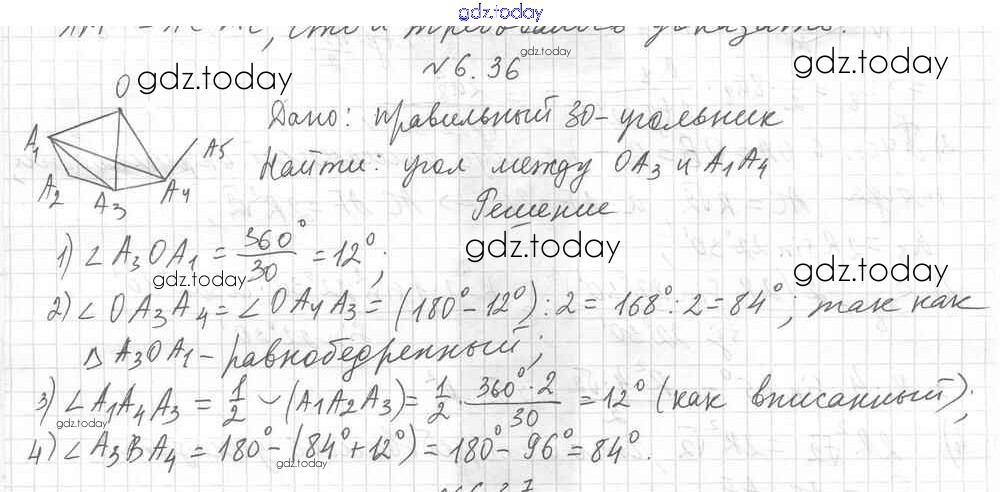 gdz.today
gdz.today
№6.36
gdz.today
gdz.today
O
A1
A2
A3
A4
A5
Дано: правильный 30-угольник
Найти: угол между OA3 и A1A4
Решение
gdz.today
gdz.today
1) ∠A3OA1 = 360°/30 = 12°;
gdz.today
2) ∠OA3A4 = ∠OA4A3 = (180° - 12°) : 2 = 168° : 2 = 84°; так как
△A3OA1 - равнобедренный;
3) ∠A1A4A3 = 1/2 ◡(A1A2A3) = 1/2 · 360°·2/30 = 12° (как вписанный);
gdz.today
4) ∠A3BA4 = 180° - (84° + 12°) = 180° - 96° = 84°.
gdz.today